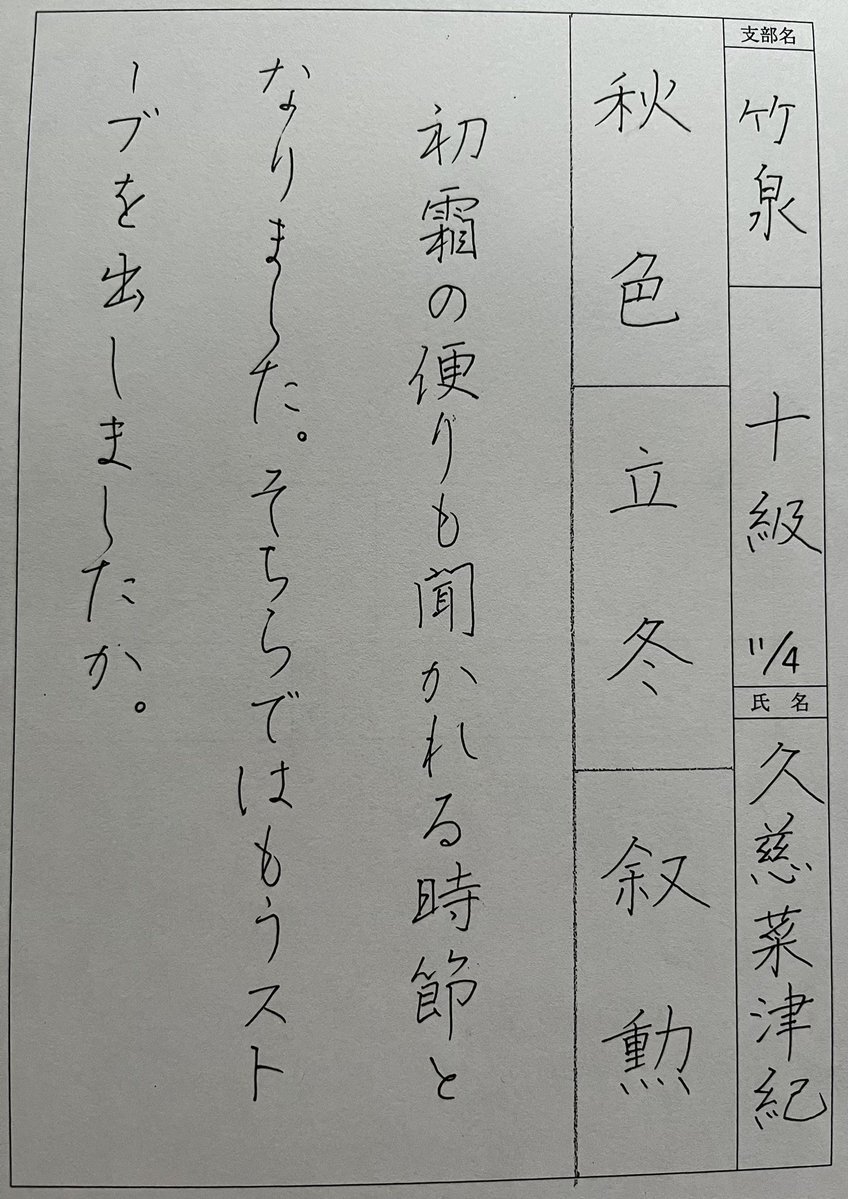 支部名
竹泉
十級 11/4
氏名
久慈菜津紀
秋色
立冬
叙勲
初霜の便りも聞かれる時節と
なりました。そちらではもうスト
ーブを出しましたか。